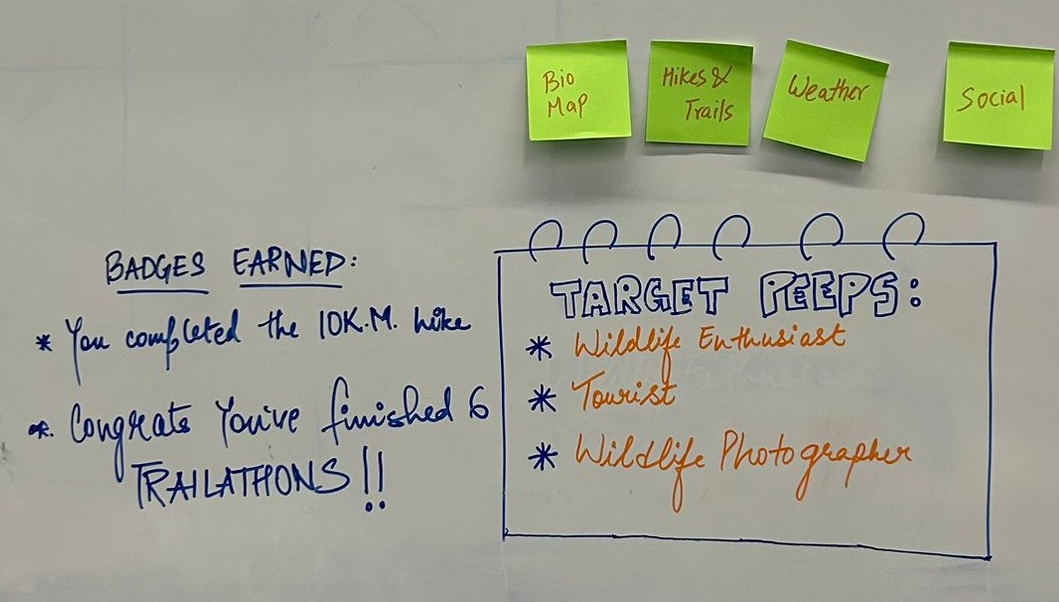 Bio
Map
Hikes &
Trails
Weather
Social
BADGES EARNED:
* You completed the 10K.M. hike
* Congrats You've finished 6
TRAILATHONS!!
TARGET PEEPS:
* Wildlife Enthusiast
* Tourist
* Wildlife Photographer